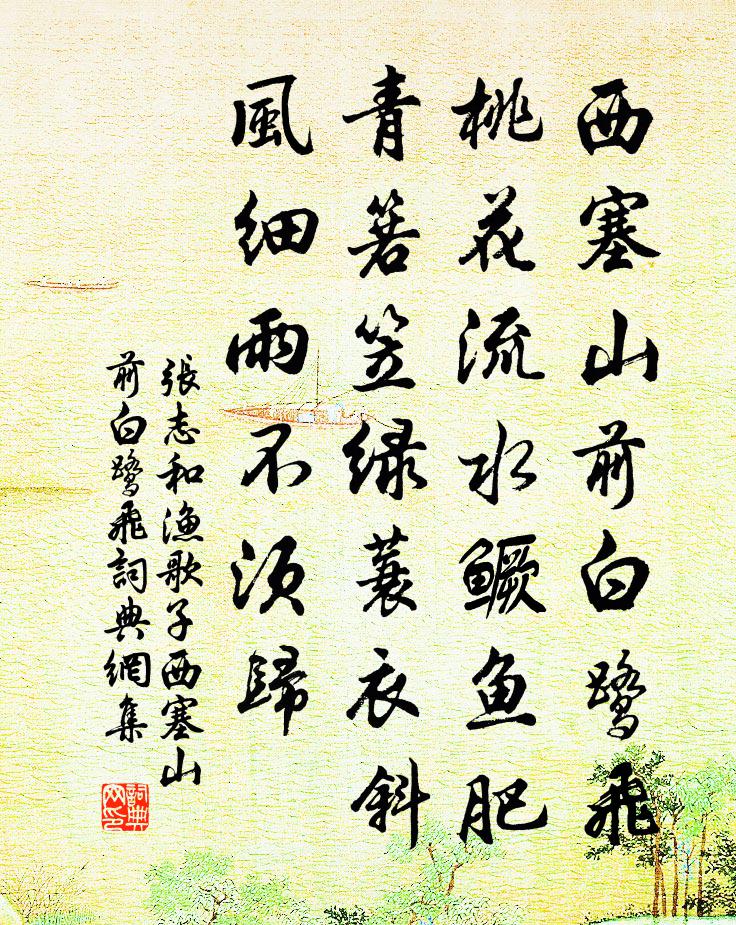 西塞山前白鷺飛
桃花流水鱖魚肥
青箬笠緑蓑衣斜
風細雨不須歸
張志和漁歌子西塞山
前白鷺飛詞典網集
詞典
网印